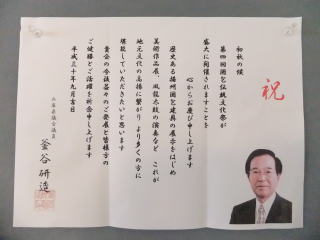 祝
初秋の候
第四回圏乞伝統文化祭が
盛大に開催されますことを
心からお慶び申し上げます
歴史ある播州圏乞建具の展示をはじめ
美術作品展、風龍太鼓の演奏など これが
地元文化の高揚に繋がり より多くの方に
堪能していただきたいと思います
貴会の今後益々のご発展と皆様方の
ご健勝とご活躍を祈念申し上げます
平成三十年九月吉日
兵庫県議会議員
釜谷 研造